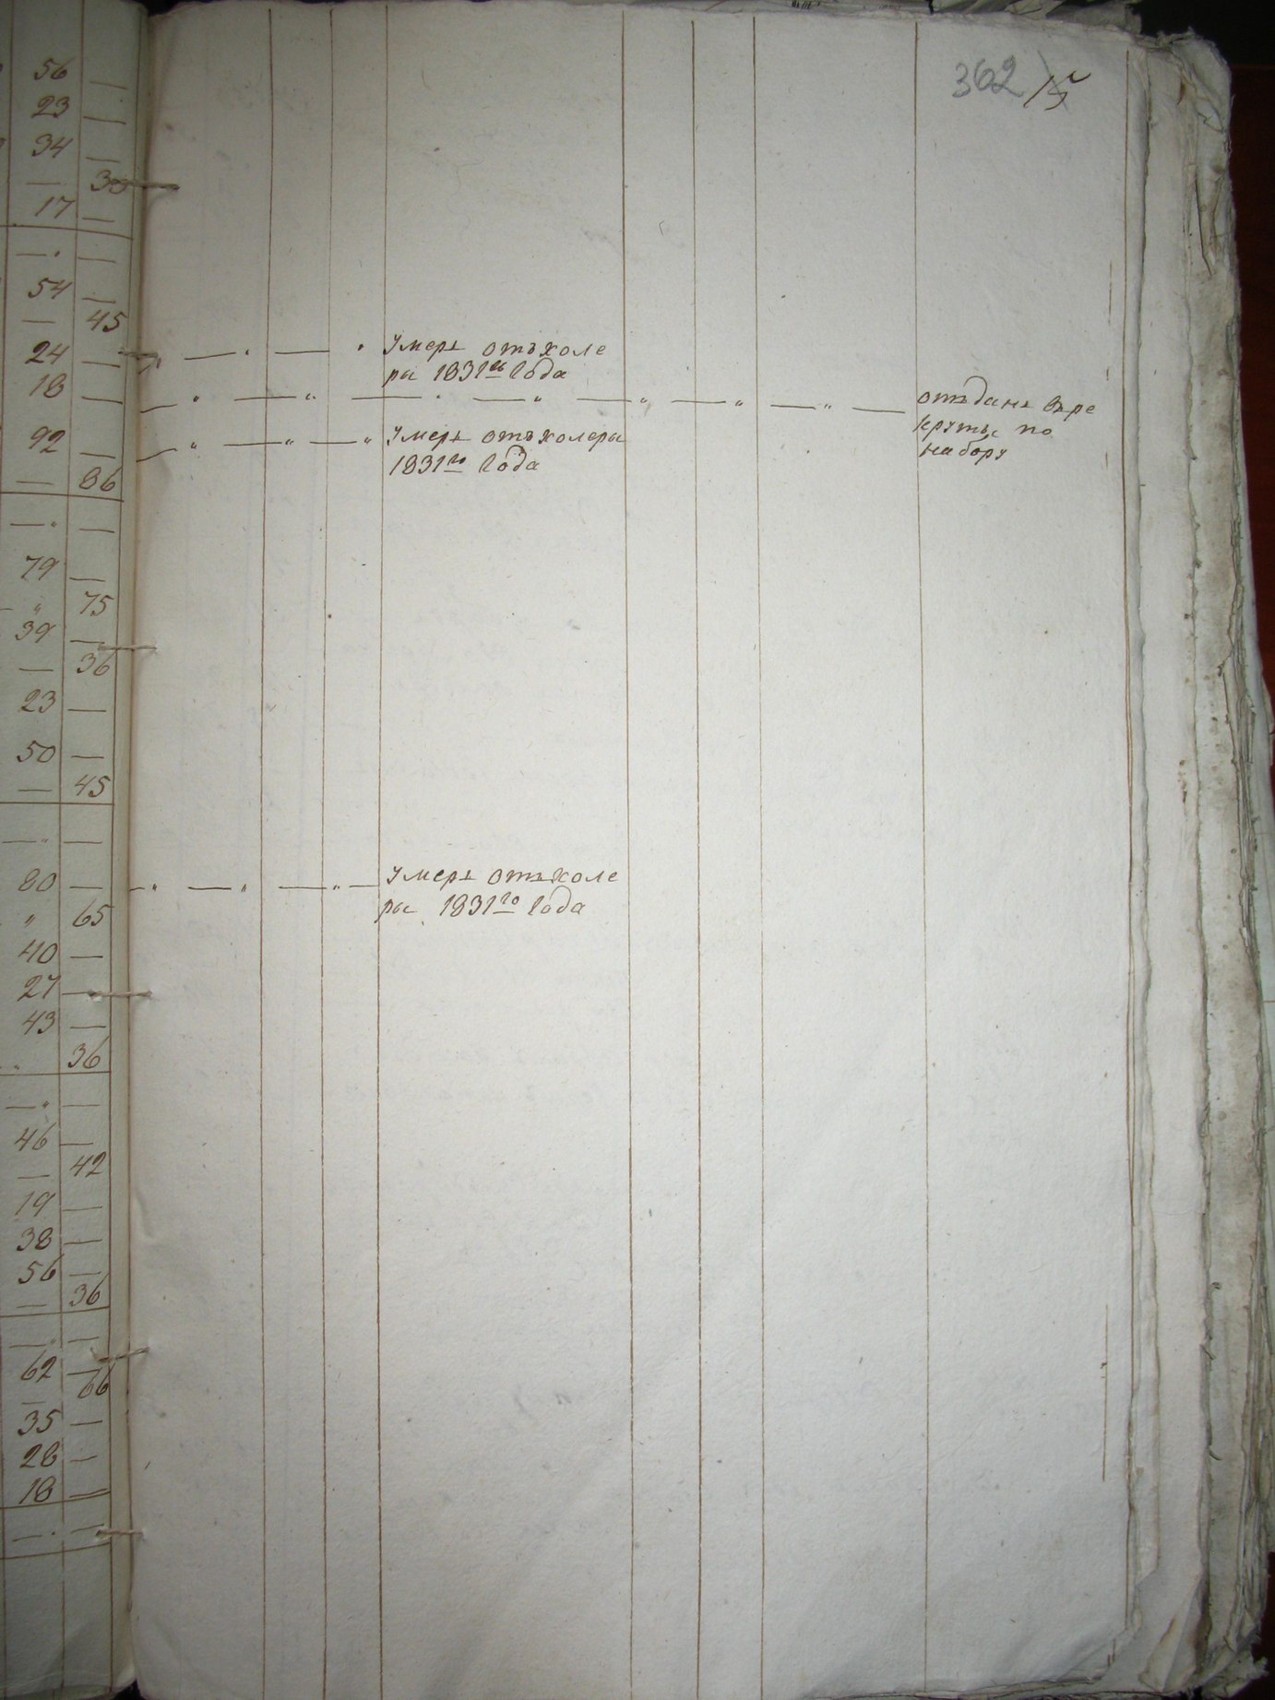 362
56 —
23 —
34 —
— 30
17 —
— · —
54 —
— 45
24 —
18 —
92 —
— 86
— · —
79 —
— " 75
39 —
— 36
23 —
50 —
— 45
— · —
80 —
" 65
40 —
27 —
43 —
" 36
— · —
46 —
— 42
19 —
38 —
56 —
— 36
— · —
62 —
— 66
35 —
28 —
18 —
— · —
Умеръ отъ холе
ры 1831го года
отъданъ въ ре
круты по
набору
Умеръ отъ холеры
1831го года
Умеръ отъ холе
ры 1831го года